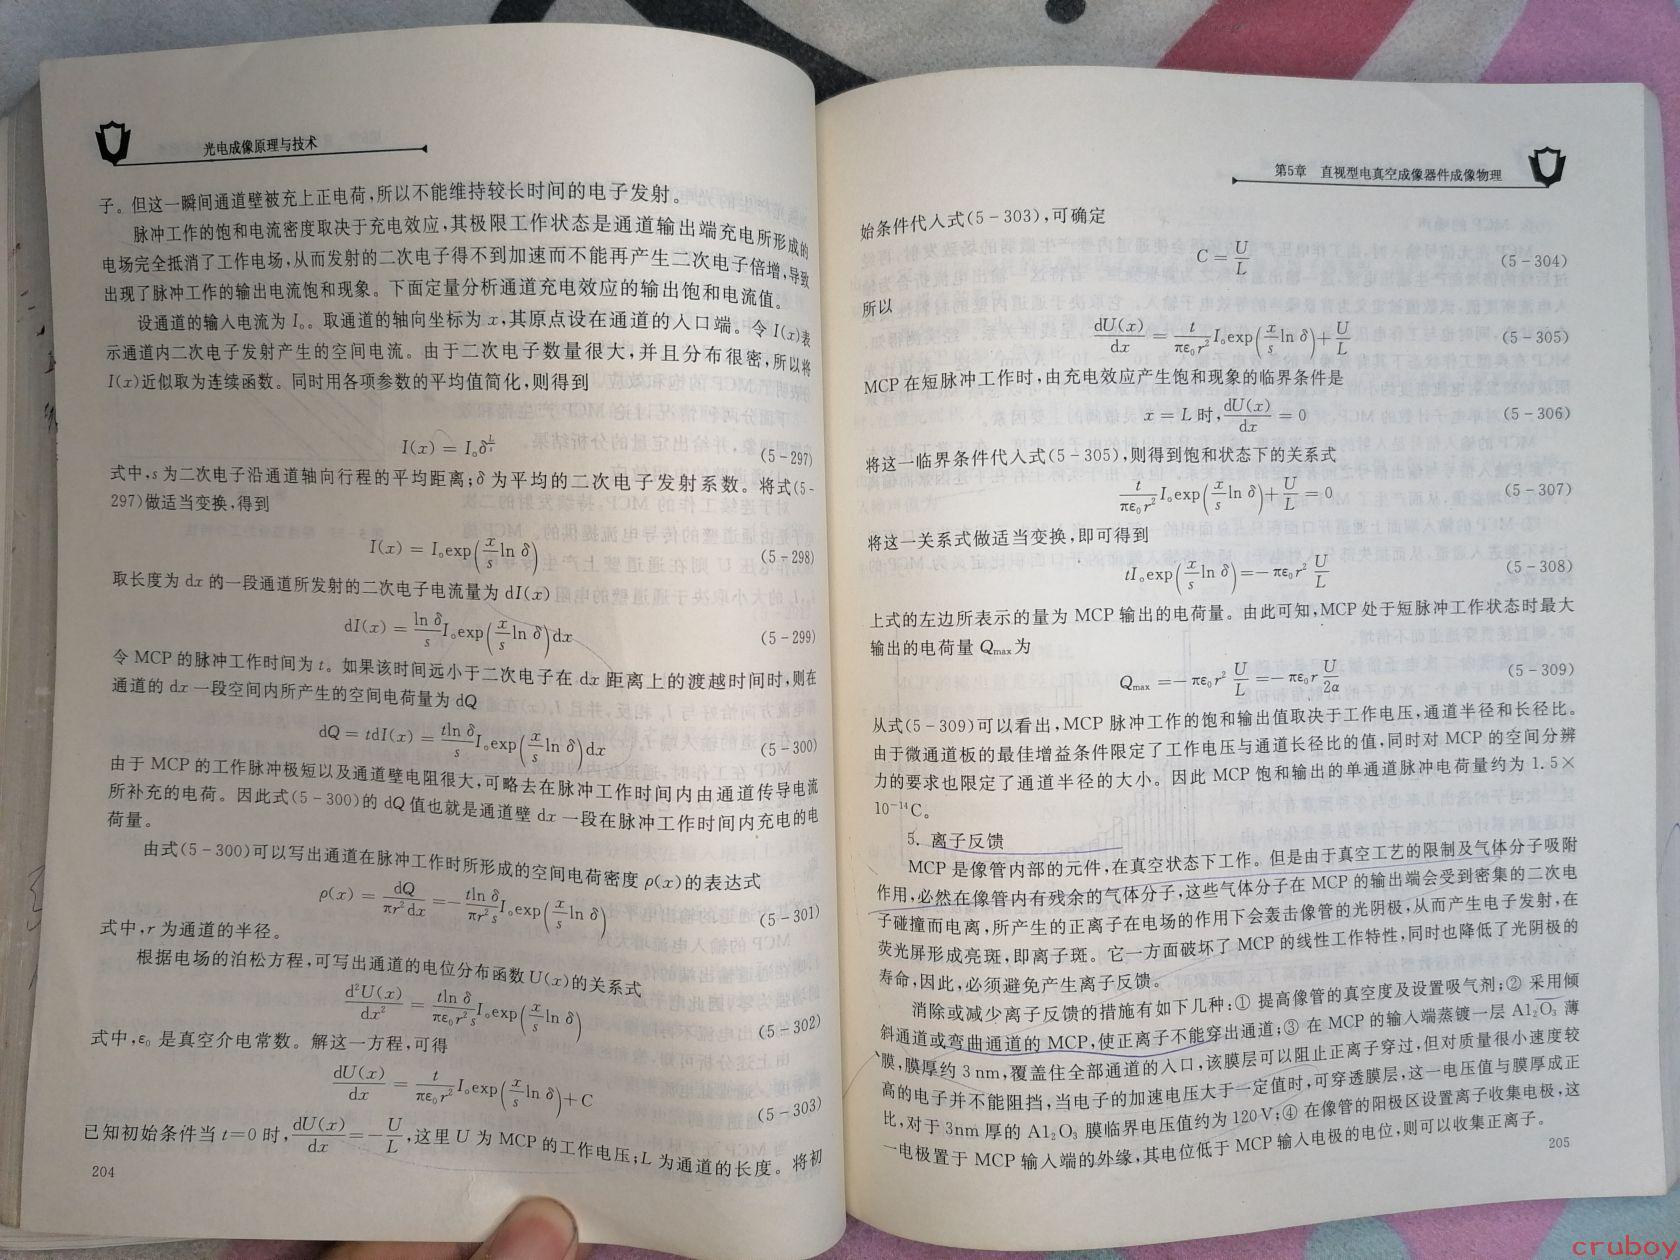 光电成像原理与技术
子。但这一瞬间通道壁被充上正电荷,所以不能维持较长时间的电子发射。
脉冲工作的饱和电流密度取决于充电效应,其极限工作状态是通道输出端充电所形成的
电场完全抵消了工作电场,从而发射的二次电子得不到加速而不能再产生二次电子倍增,导致
出现了脉冲工作的输出电流饱和现象。下面定量分析通道充电效应的输出饱和电流值。
设通道的输入电流为 I₀。取通道的轴向坐标为 x,其原点设在通道的入口端。令 I(x)表
示通道内二次电子发射产生的空间电流。由于二次电子数量很大,并且分布很密,所以将
I(x)近似取为连续函数。同时用各项参数的平均值简化,则得到
I(x) = I₀δ^(L/s) (5-297)
式中,s 为二次电子沿通道轴向行程的平均距离;δ 为平均的二次电子发射系数。将式(5-
297)做适当变换,得到
I(x) = I₀exp(x/s ln δ) (5-298)
取长度为 dx 的一段通道所发射的二次电子电流量为 dI(x)
dI(x) = ln δ/s I₀exp(x/s ln δ)dx (5-299)
令 MCP 的脉冲工作时间为 t。如果该时间远小于二次电子在 dx 距离上的渡越时间时,则在
通道的 dx 一段空间内所产生的空间电荷量为 dQ
dQ = tdI(x) = tln δ/s I₀exp(x/s ln δ)dx (5-300)
由于 MCP 的工作脉冲极短以及通道壁电阻很大,可略去在脉冲工作时间内由通道传导电流
所补充的电荷。因此式(5-300)的 dQ 值也就是通道壁 dx 一段在脉冲工作时间内充电的电
荷量。
由式(5-300)可以写出通道在脉冲工作时所形成的空间电荷密度 ρ(x)的表达式
ρ(x) = dQ/πr²dx = − tln δ/πr²s I₀exp(x/s ln δ) (5-301)
式中,r 为通道的半径。
根据电场的泊松方程,可写出通道的电位分布函数 U(x)的关系式
d²U(x)/dx² = tln δ/πε₀r²s I₀exp(x/s ln δ) (5-302)
式中,ε₀ 是真空介电常数。解这一方程,可得
dU(x)/dx = t/πε₀r² I₀exp(x/s ln δ)+C (5-303)
已知初始条件当 t=0 时,dU(x)/dx=−U/L,这里 U 为 MCP 的工作电压;L 为通道的长度。将初
204
第5章 直视型电真空成像器件成像物理
始条件代入式(5-303),可确定
C = U/L (5-304)
所以
dU(x)/dx = t/πε₀r² I₀exp(x/s ln δ)+U/L (5-305)
MCP 在短脉冲工作时,由充电效应产生饱和现象的临界条件是
x = L 时,dU(x)/dx = 0 (5-306)
将这一临界条件代入式(5-305),则得到饱和状态下的关系式
t/πε₀r² I₀exp(x/s ln δ)+U/L = 0 (5-307)
将这一关系式做适当变换,即可得到
tI₀exp(x/s ln δ)=−πε₀r² U/L (5-308)
上式的左边所表示的量为 MCP 输出的电荷量。由此可知,MCP 处于短脉冲工作状态时最大
输出的电荷量 Qmax 为
Qmax =−πε₀r² U/L =−πε₀r U/2α (5-309)
从式(5-309)可以看出,MCP 脉冲工作的饱和输出值取决于工作电压,通道半径和长径比。
由于微通道板的最佳增益条件限定了工作电压与通道长径比的值,同时对 MCP 的空间分辨
力的要求也限定了通道半径的大小。因此 MCP 饱和输出的单通道脉冲电荷量约为 1.5×
10⁻¹⁴C。
5. 离子反馈
MCP 是像管内部的元件,在真空状态下工作。但是由于真空工艺的限制及气体分子吸附
作用,必然在像管内有残余的气体分子,这些气体分子在 MCP 的输出端会受到密集的二次电
子碰撞而电离,所产生的正离子在电场的作用下会轰击像管的光阴极,从而产生电子发射,在
荧光屏形成亮斑,即离子斑。它一方面破坏了 MCP 的线性工作特性,同时也降低了光阴极的
寿命,因此,必须避免产生离子反馈。
消除或减少离子反馈的措施有如下几种:① 提高像管的真空度及设置吸气剂;② 采用倾
斜通道或弯曲通道的 MCP,使正离子不能穿出通道;③ 在 MCP 的输入端蒸镀一层 Al₂O₃ 薄
膜,膜厚约 3 nm,覆盖住全部通道的入口,该膜层可以阻止正离子穿过,但对质量很小速度较
高的电子并不能阻挡,当电子的加速电压大于一定值时,可穿透膜层,这一电压值与膜厚成正
比,对于 3nm 厚的 Al₂O₃ 膜临界电压值约为 120 V;④ 在像管的阳极区设置离子收集电极,这
一电极置于 MCP 输入端的外缘,其电位低于 MCP 输入电极的电位,则可以收集正离子。
205
cruboy